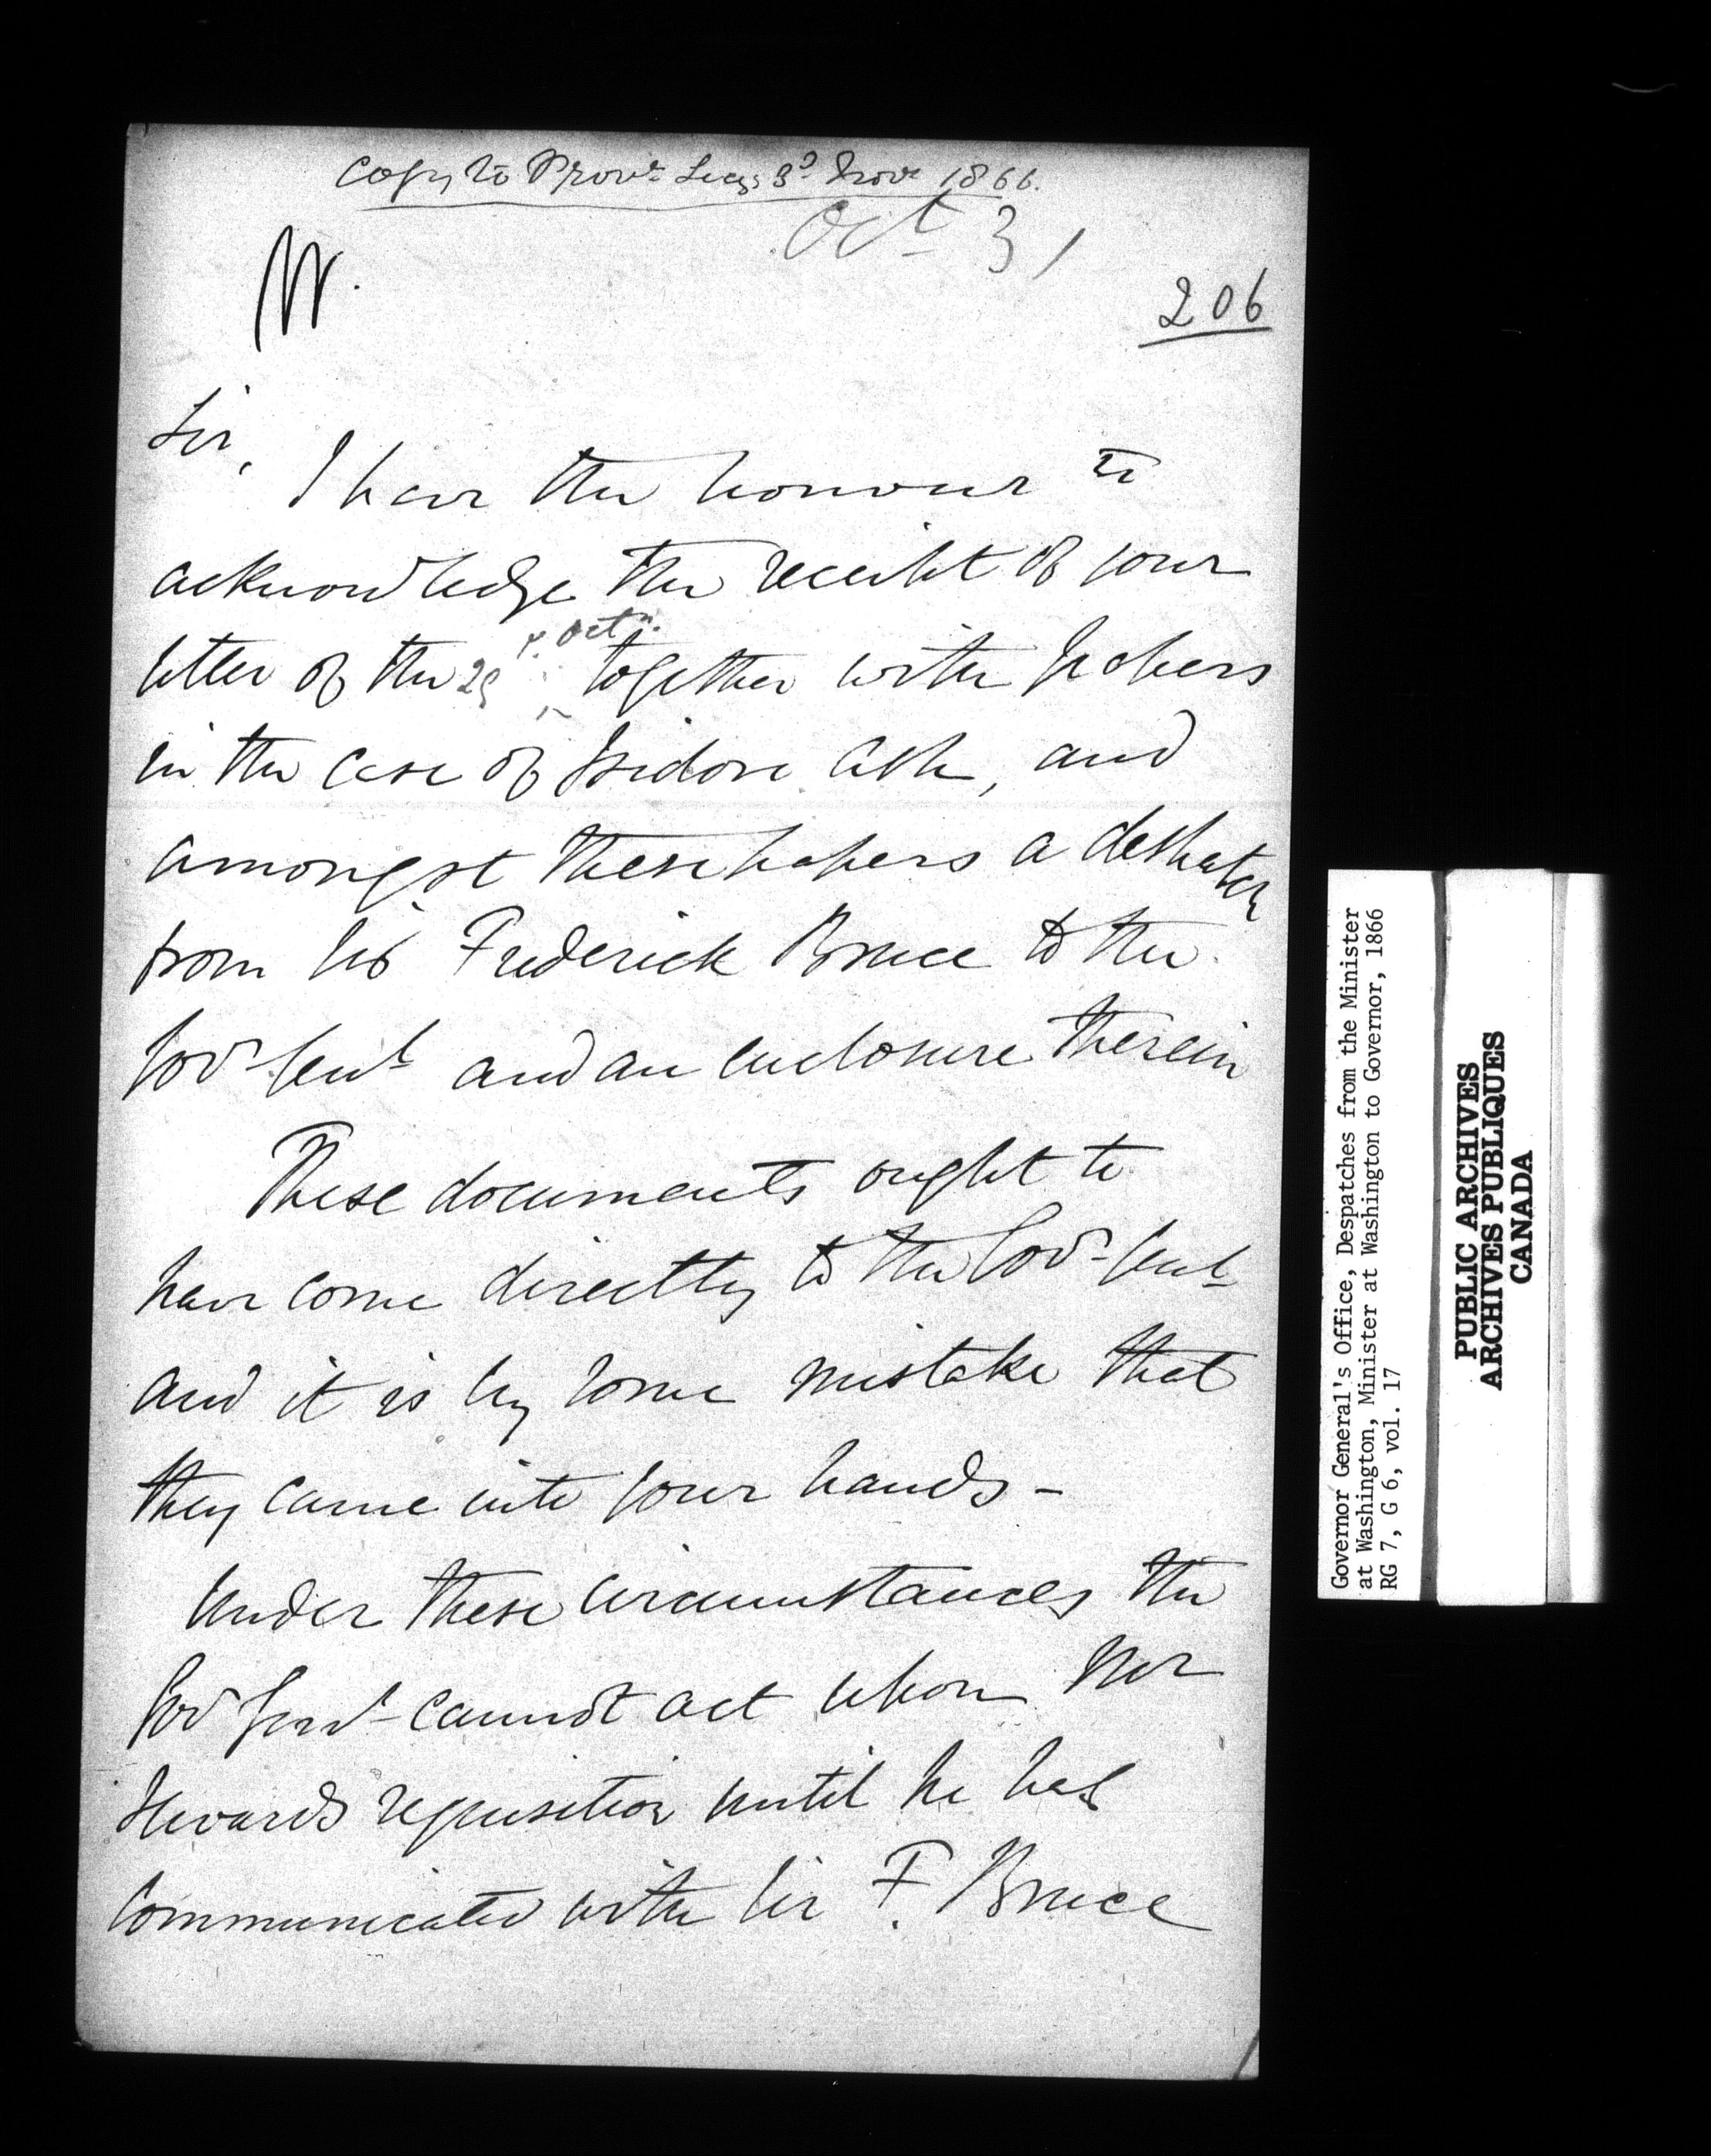 Copy to Prov.l Secy 3d Nov.r 1866.
Oct 31
W.
206
Sir,
I have the honour to
acknowledge the receipt of your
letter of the 29 Oct.r together with papers
in the case of Isidore Ash, and
amongst these papers a despatch
from Sir Frederick Bruce to the
Gov.r Gen.l and an enclosure therein
These documents ought to
have come directly to the Gov.r Gen.l
and it is by some mistake that
they came into your hands -
Under these circumstances the
Gov Gen.l cannot act upon Mr
Sewards requisition until he has
communicated with Sir F. Bruce
Governor General's Office, Despatches from the Minister
at Washington, Minister at Washington to Governor, 1866
RG 7, G 6, vol. 17
PUBLIC ARCHIVES
ARCHIVES PUBLIQUES
CANADA